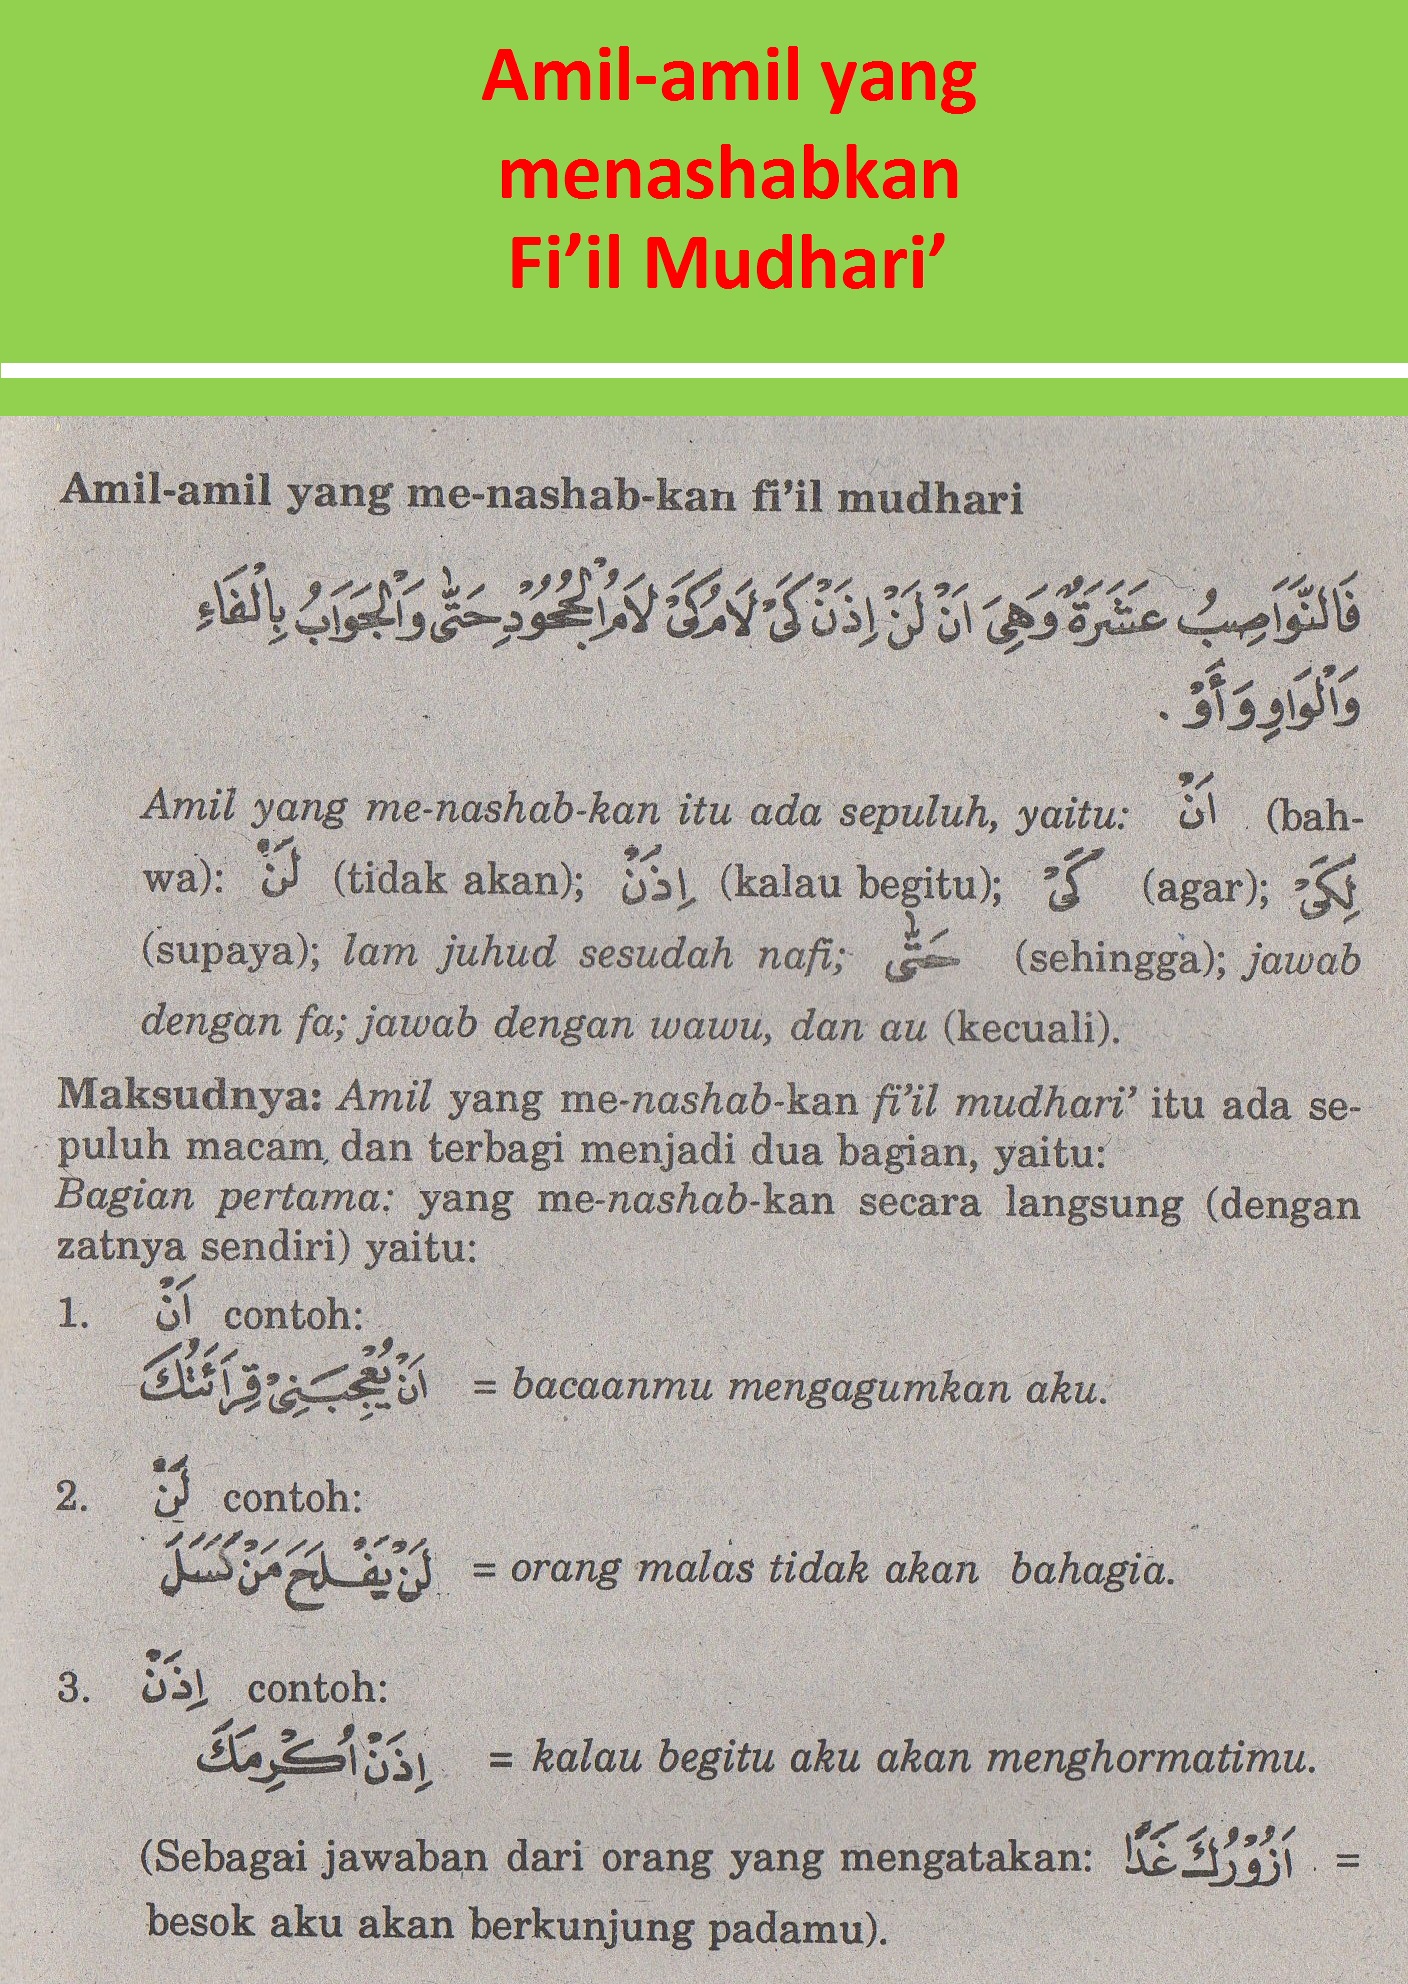 Amil-amil yang
menashabkan
Fi’il Mudhari’
Amil-amil yang me-nashab-kan fi’il mudhari
فَالنَّوَاصِبُ عَشَرَةٌ وَهِيَ اَنْ لَنْ اِذَنْ كَىْ لَامُ كَىْ لَامُ الْجُحُوْدِ حَتّٰى وَالْجَوَابُ بِالْفَاءِ
وَالْوَاوِ وَأَوْ .
Amil yang me-nashab-kan itu ada sepuluh, yaitu: اَنْ (bah-
wa): لَنْ (tidak akan); اِذَنْ (kalau begitu); كَىْ (agar); لِكَىْ
(supaya); lam juhud sesudah nafi; حَتّٰى (sehingga); jawab
dengan fa; jawab dengan wawu, dan au (kecuali).
Maksudnya: Amil yang me-nashab-kan fi’il mudhari’ itu ada se-
puluh macam, dan terbagi menjadi dua bagian, yaitu:
Bagian pertama: yang me-nashab-kan secara langsung (dengan
zatnya sendiri) yaitu:
1. اَنْ contoh:
اَنْ يُعْجِبَنِىْ قِرَائَتُكَ = bacaanmu mengagumkan aku.
2. لَنْ contoh:
لَنْ يَفْلَحَ مَنْ كَسَلَ = orang malas tidak akan bahagia.
3. اِذَنْ contoh:
اِذَنْ اُكْرِمَكَ = kalau begitu aku akan menghormatimu.
(Sebagai jawaban dari orang yang mengatakan: اَزُوْرُكَ غَدًا =
besok aku akan berkunjung padamu).